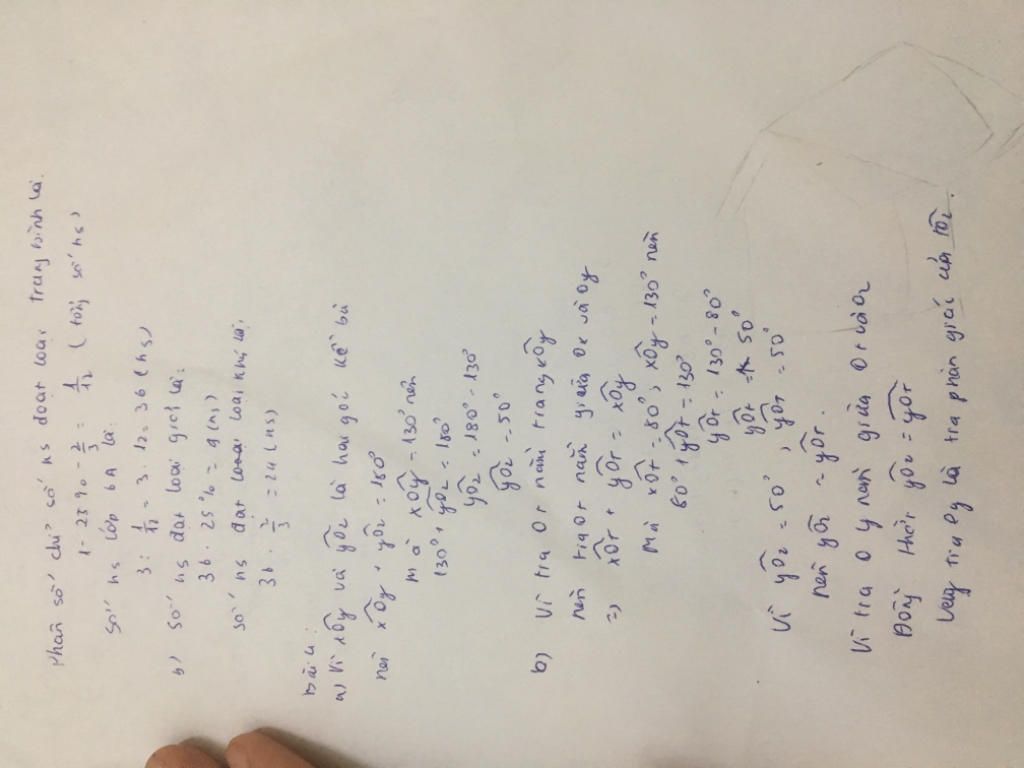 Phân số chỉ số hs đạt loại trung bình là.
1 - 25% - 2/3 = 1/12 (tổng số hs)
Số hs lớp 6A là:
3 : 1/12 = 3 . 12 = 36 (hs)
b) Số hs đạt loại giỏi là:
36 . 25% = 9 (hs)
Số hs đạt loại khá là:
36 . 2/3 = 24 (hs)
Bài 4:
a) Vì xÔy và yÔz là hai góc kề bù
nên xÔy + yÔz = 180°
mà xÔy = 130° nên
130° + yÔz = 180°
yÔz = 180° - 130°
yÔz = 50°
b) Vì tia Ot nằm trong xÔy
nên tia Ot nằm giữa Ox và Oy
=> xÔt + yÔt = xÔy
Mà xÔt = 80°, xÔy = 130° nên
80° + yÔt = 130°
yÔt = 130° - 80°
yÔt = 50°
Vì yÔz = 50°, yÔt = 50°
nên yÔz = yÔt.
Vì tia Oy nằm giữa Ot và Oz
Đồng thời yÔz = yÔt
Vậy tia Oy là tia phân giác của tÔz.